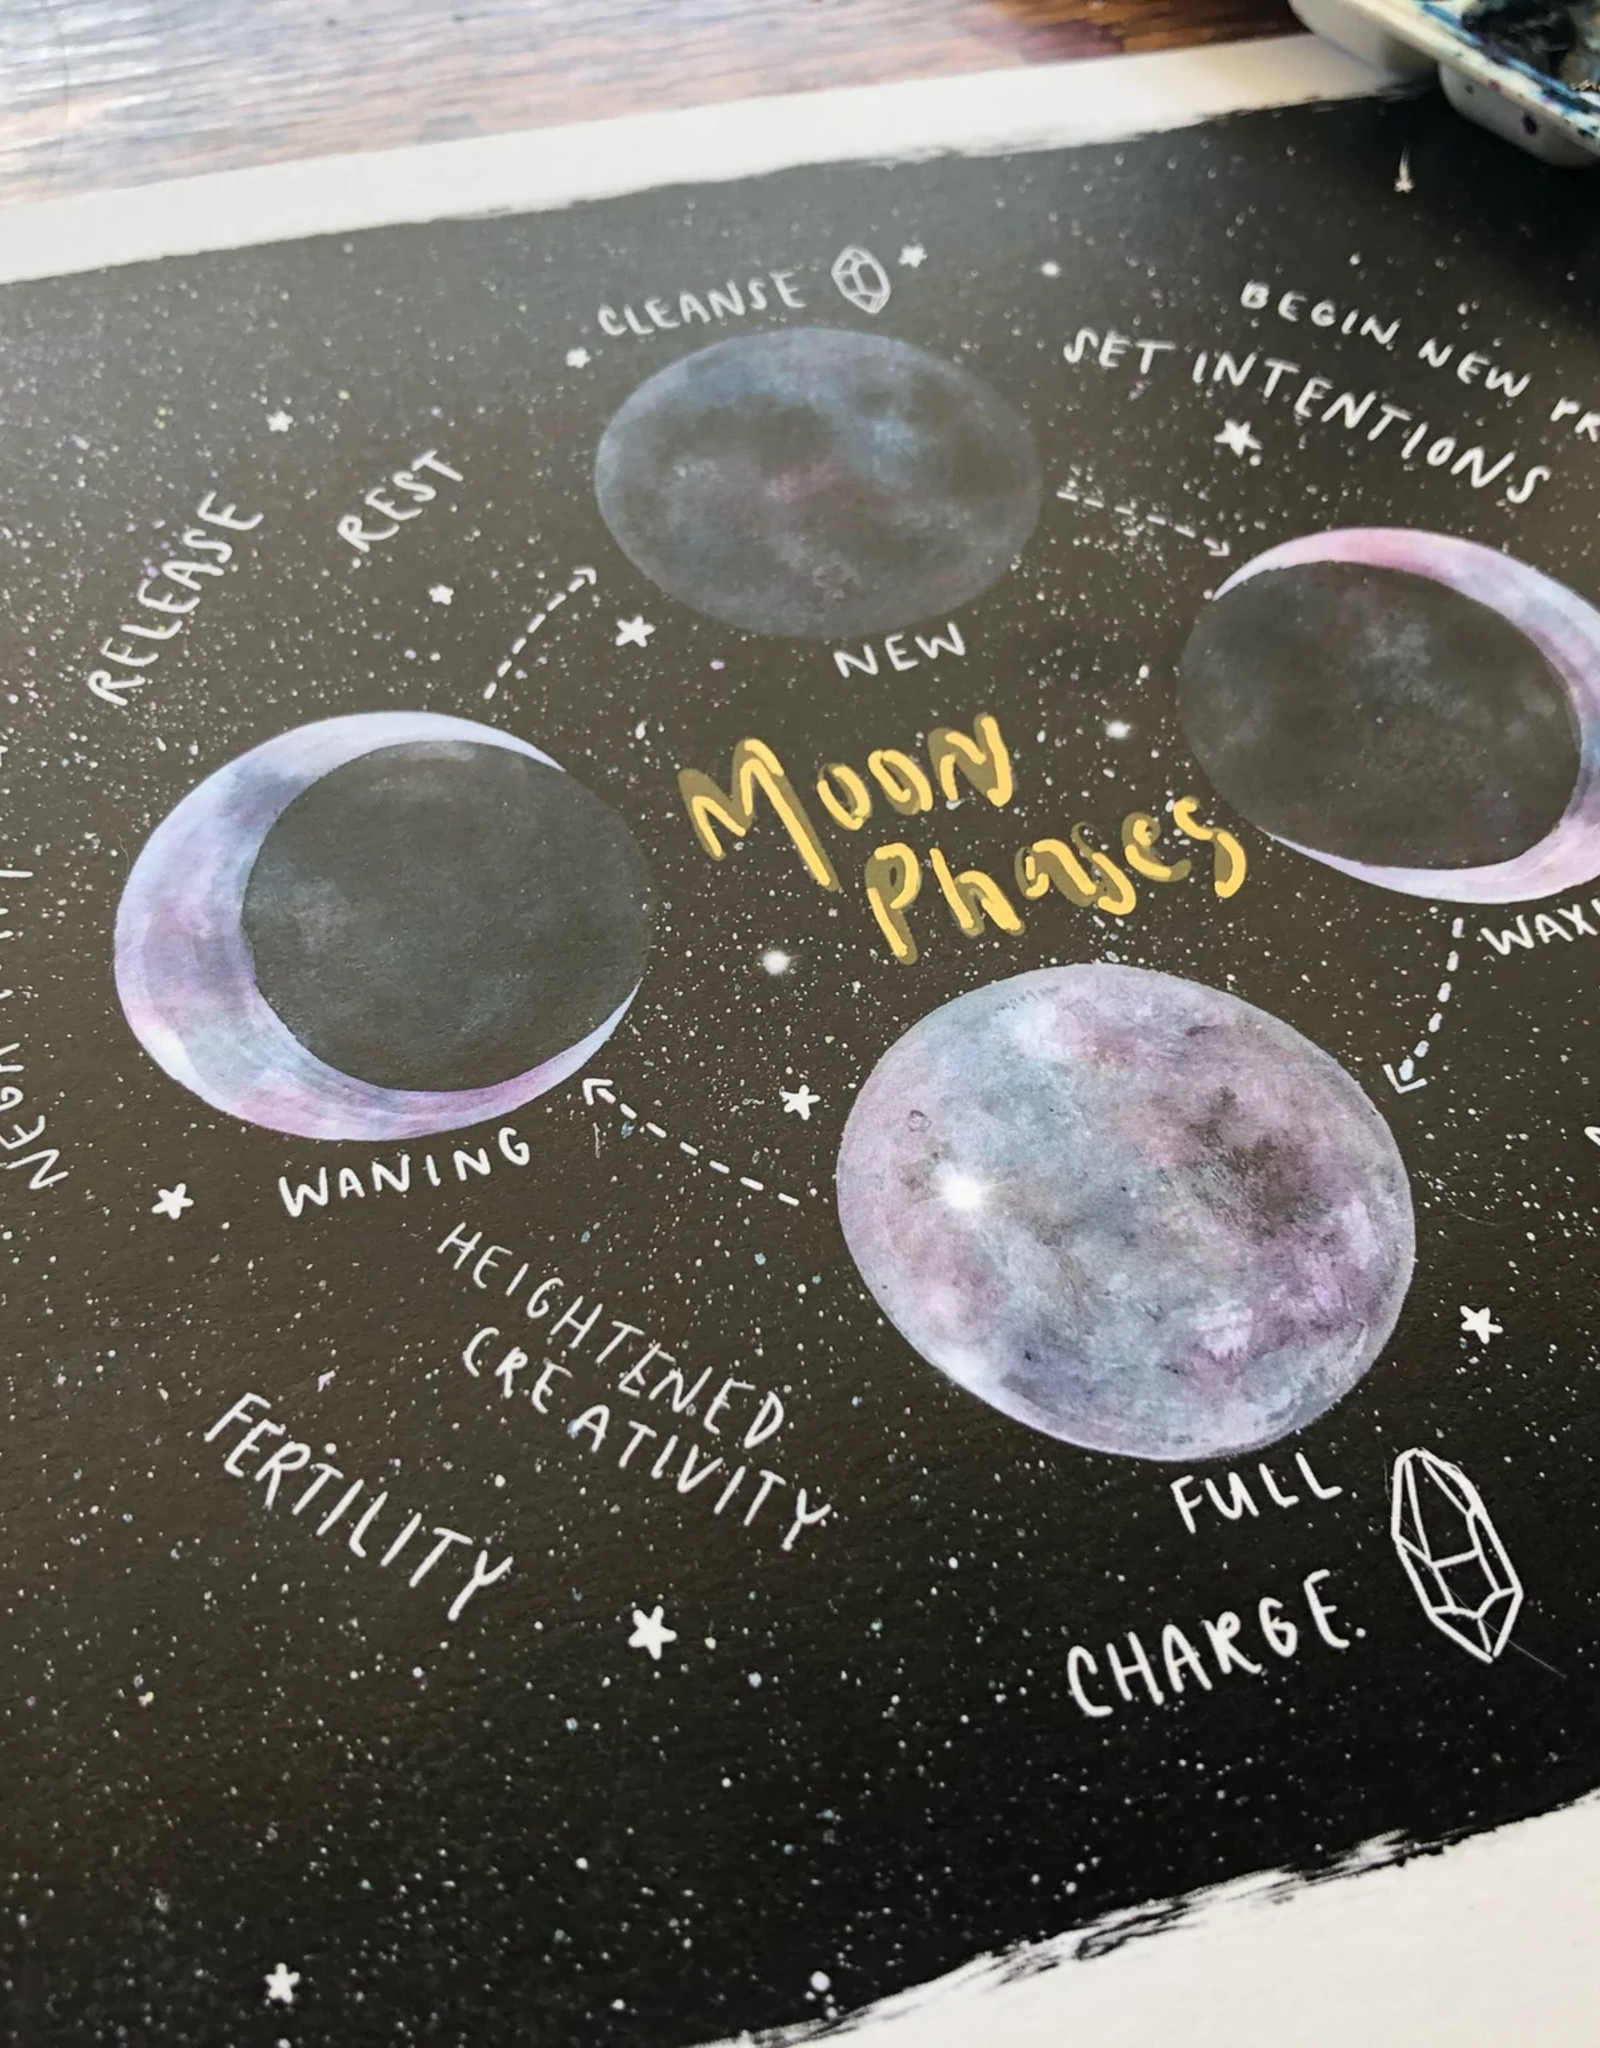 CLEANSE
BEGIN NEW
SET INTENTIONS
REST
RELEASE
NEW
Moon
Phases
WANING
HEIGHTENED
CREATIVITY
FERTILITY
FULL
CHARGE